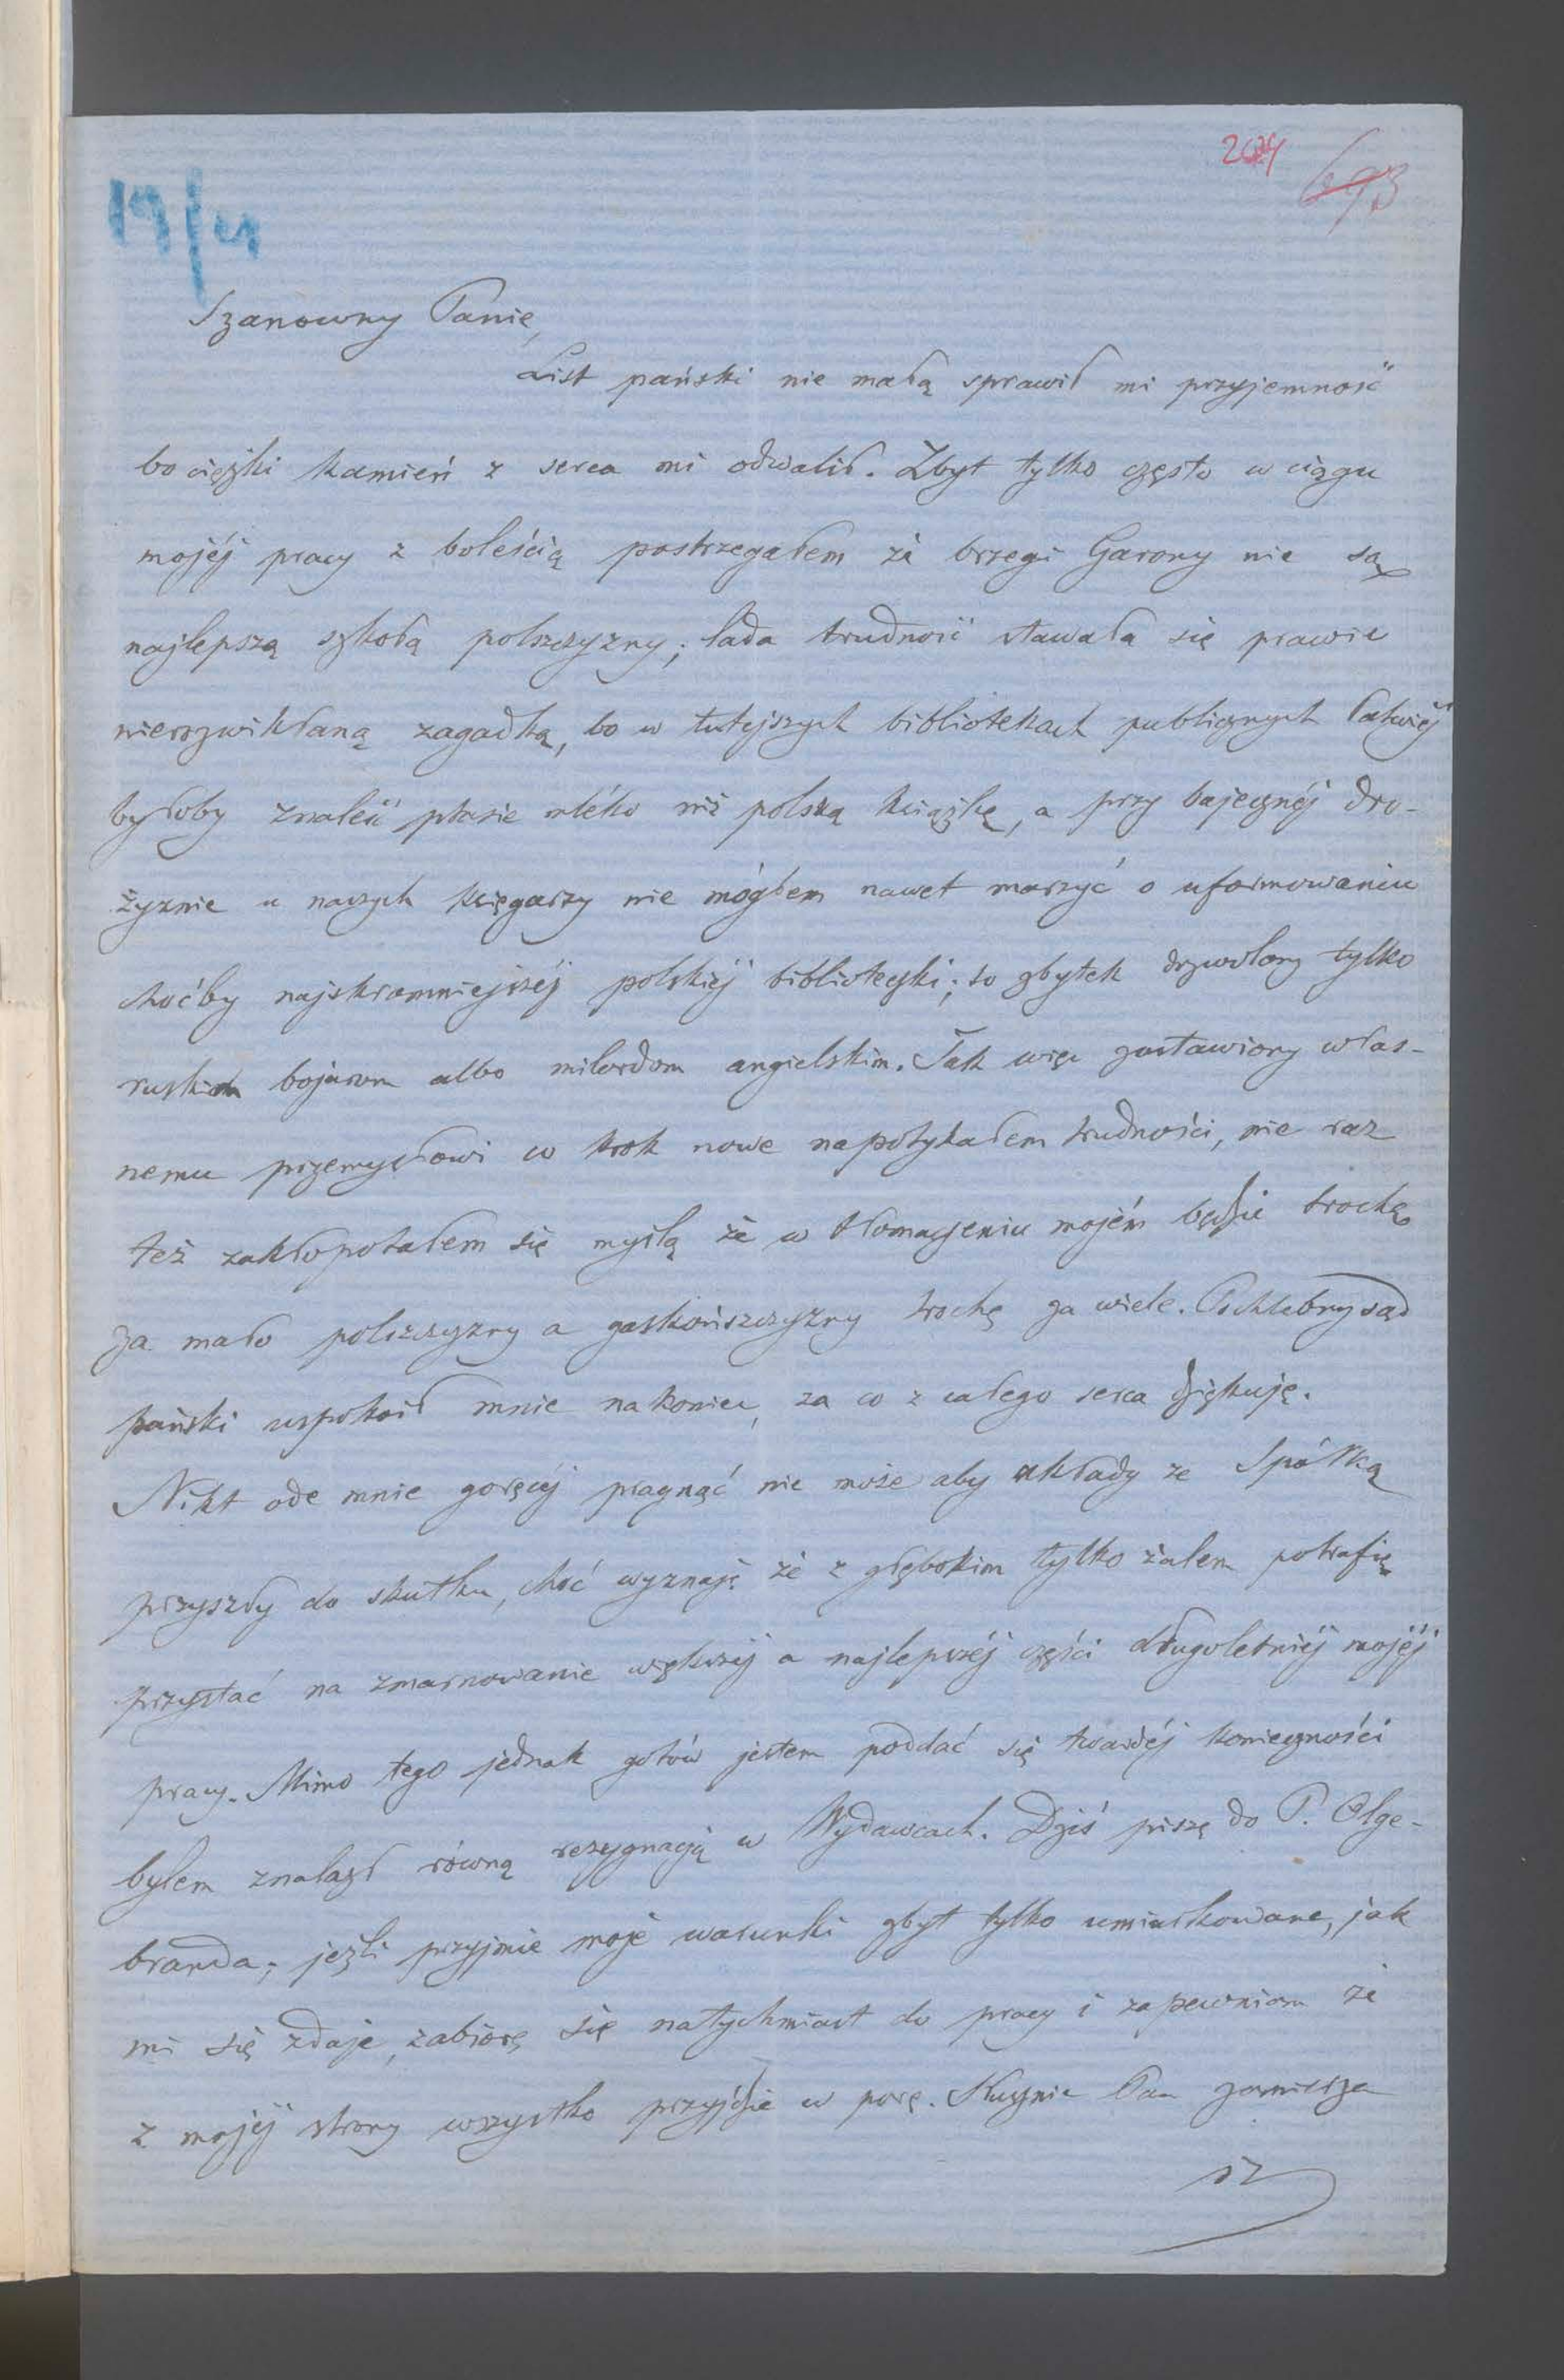 693
19/
Szanowny Panie,
List pański nie małą sprawił mi przyjemność
bo ciężki kamień z serca mi odwalił. Zbyt tylko często w ciągu
mojéj pracy z boleścią postrzegałem że brzegi Garony nie są
najlepszą szkołą polszczyzny; lada trudność stawała się prawie
nierozwikłaną zagadką, bo w tutejszych bibliotekach publicznych łatwiéj
byłoby znaleść ptasie mléko niż polską książkę, a przy bajecznéj dro-
żyznie u naszych księgarzy nie mógłem nawet marzyć o uformowaniu
choćby najskromniejszéj polskiéj biblioteczki; to zbytek dozwolony tylko
ruskim bojarom albo milordom angielskim. Tak więc zostawiony włas-
nemu przemysłowi co krok nowe napotykałem trudności, nie raz
też zakłopotałem się myślą że w tłomaczeniu mojém będzie trochę
za mało polszczyzny a gaskońszczyzny trochę za wiele. Pochlebny sąd
pański uspokoił mnie nakoniec, za co z całego serca dziękuję.
Nikt ode mnie goręcéj pragnąć nie może aby układy ze Spółką
przyszły do skutku, choć wyznaję że z głębokim tylko żalem potrafię
przystać na zmarnowanie większéj a najlepszéj części długoletniéj mojéj
pracy. Mimo tego jednak gotów jestem poddać się twardéj konieczności
bylem znalazł równą rezygnacją w Wydawcach. Dziś piszę do P. Olge-
branda; jeźli przyjmie moje warunki zbyt tylko umiarkowane, jak
mi się zdaje, zabiorę się natychmiast do pracy i zapewniam że
z mojéj strony wszystko przyjdzie w porę. Słusznie Pan zamierza